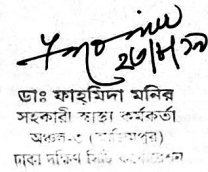 ২৩/৮/১৯
ডাঃ ফাহমিদা মনির
সহকারী স্বাস্থ্য কর্মকর্তা
অঞ্চল-৩
ঢাকা দক্ষিণ সিটি কর্পোরেশন